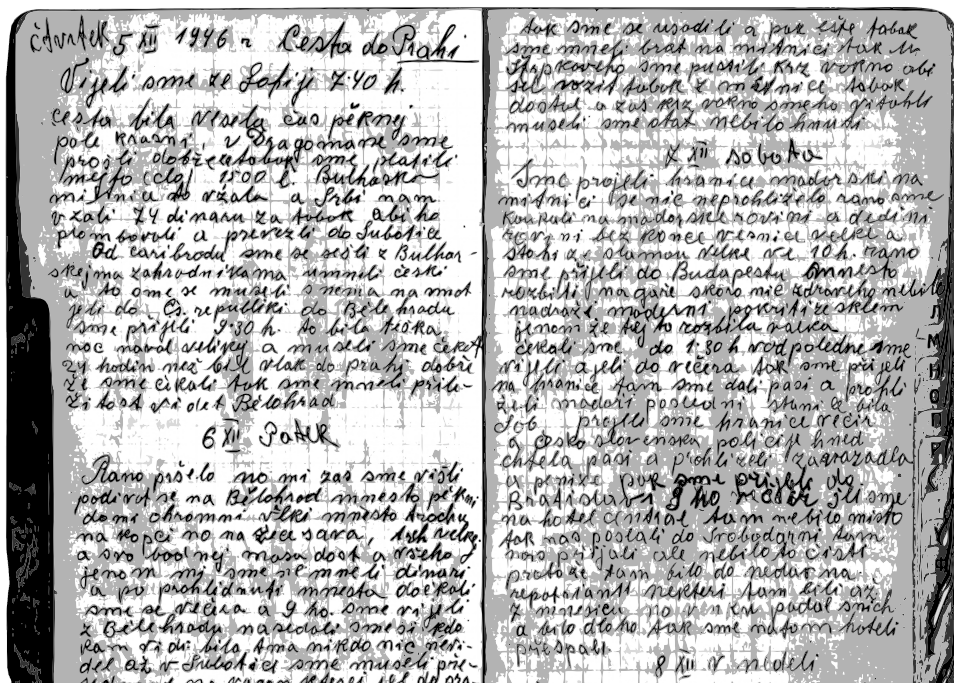 čtvrtek 5 XII 1946 r Cesta do Prahi
Vijeli sme ze Sofiji 7·40 h.
cesta bila vesela čas pěknej
pole krasni, v Dragomane sme
projli dobře tabak sme platili
mesto cloj 1500 l. Bulharska
mitnica to vzala a Srbi nam
vzali 74 dinaru za tobok abi ho
plombovali a prevezli do Subotice
Od caribrodu sme se sešli z Bulhar-
skejma zahradnikama umnili česki
a to sme se museli smema na mot
jeli do Čs. republiki do Běle hradu
sme přijeli 9·30 h. to bila težka
noc naval velikej a museli sme čekat
24 hodin než bil vlak do prahj dobře
že sme čekali tak sme mneli přile-
žitost videt Bělohrad
6 XII Patek
Rano pršelo no mi zas sme višli
podivat se na Bělohrad mnesto pěkni
domi ohromni velki mnesto trochu
na kopci no na řece sava, trh velkej
a svobodnej masa dost a všeho
jenom mi sme ne mneli dinari
a po prohlidnuti mnesta dočkali
sme se večera a 9 ho. sme vijeli
z Bělehradu nasedali sme si kdo
kam vidi bila tma nikdo nic nevi-
del až v Subotice sme museli pře-
tak sme se usadili a pak ešte tabak
sme mneli brat na mitnici tak
sme pustili krz vokno abi
šel vozit tabak z mitnice tabak
dostal a zas krz vokno smeho vitahli
museli sme stat nebilo hnuti
7 XII sobota
Sme projeli hranice madorski na
mitnici se nic neprohliželo rano sme
koukali na madorskej rovini a dedini
rovini bez konce vesnice velke a
stohi ze slamou velke ve 10 h. rano
sme přijeli do Budapestu mnesto
rozbiti na gaře skoro nic zdraveho nebilo
nadraži moderni pokriti ze sklem
jenom že tej to rozbila valka
čekali sme do 1·30 h vodpoledne sme
vijeli a jeli do večera tak sme přijeli
na hranice tam sme dali pasi a prohli
želi madori posledni stani ca bila
Sob projeli sme hranice večir
a česko slovenska policije hned
chtela pasi a prohliželi zavazadla
a penize pak sme prijeli do
Bratislavi 9 ho večir jli sme
na hotel central tam nebilo misto
tak nas poslali do Svobodarni tam
nas prijali ale nebilo to čisti
protože tam bilo do nedavna
repatrianti nekteri tam bili až
z mnesica no venku padal snich
a bilo dloho tak sme natom hoteli
přespali
8 XII v nedeli